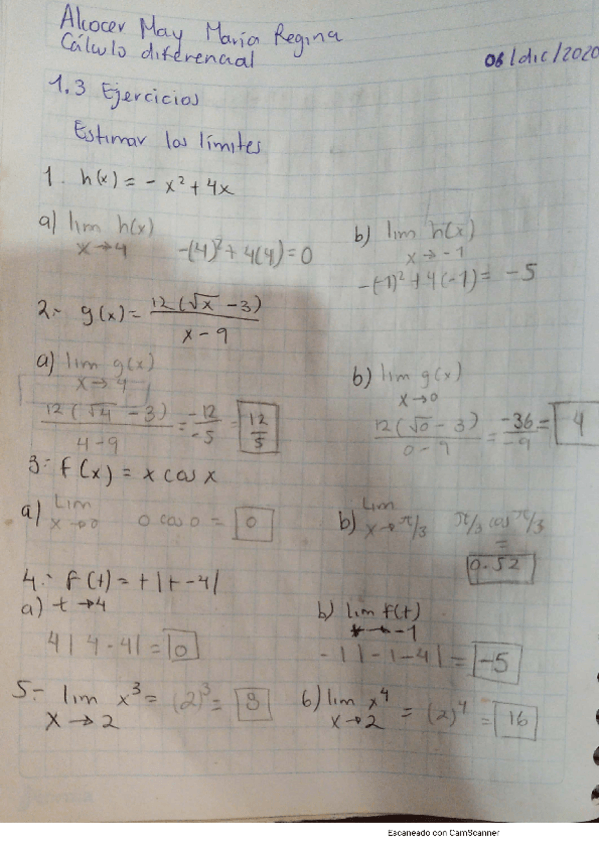 Alcocer May María Regina
Cálculo diferencial
06/dic/2020
1.3 Ejercicios
Estimar los límites
1. h(x) = - x² + 4x
a) lim h(x)
x→4 -(4)² + 4(4) = 0
b) lim h(x)
x→ -1
-(-1)² + 4(-1) = -5
2.- g(x) = 12(√x - 3) / x - 9
a) lim g(x)
x→4
12(√4 - 3) / 4 - 9 = -12 / -5 = 12/5
b) lim g(x)
x→0
12(√0 - 3) / 0 - 9 = -36 / -9 = 4
3.- f(x) = x cos x
a) Lim
x→0 0 cos 0 = 0
b) Lim
x→π/3 π/3 cos π/3
=
0.52
4.- f(t) = t|t - 4|
a) t→4
4|4 - 4| = 0
b) lim f(t)
→ -1
-1|-1-4| = -5
5.- lim x³ = (2)³ = 8
x→2
6) lim x⁴ = (2)⁴ = 16
x→2
Escaneado con CamScanner